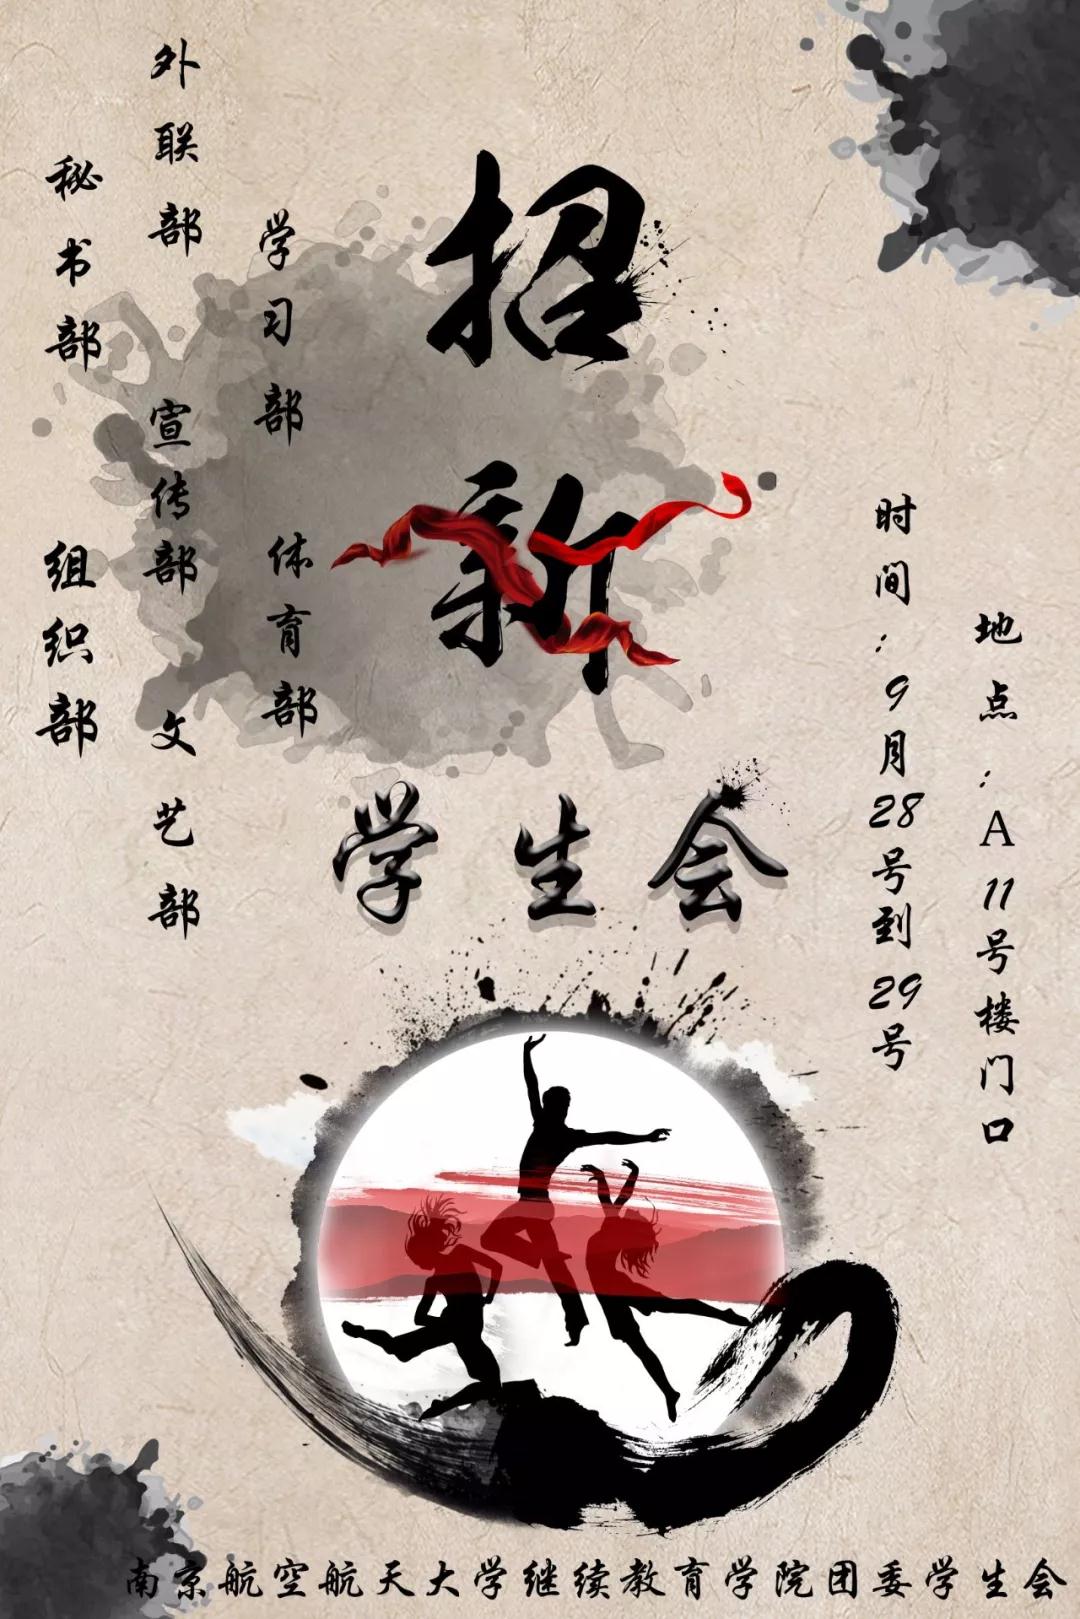 招新
学生会
外联部
秘书部
学习部
宣传部
组织部
体育部
文艺部
时间:9月28号到29号
地点:A11号楼门口
南京航空航天大学继续教育学院团委学生会